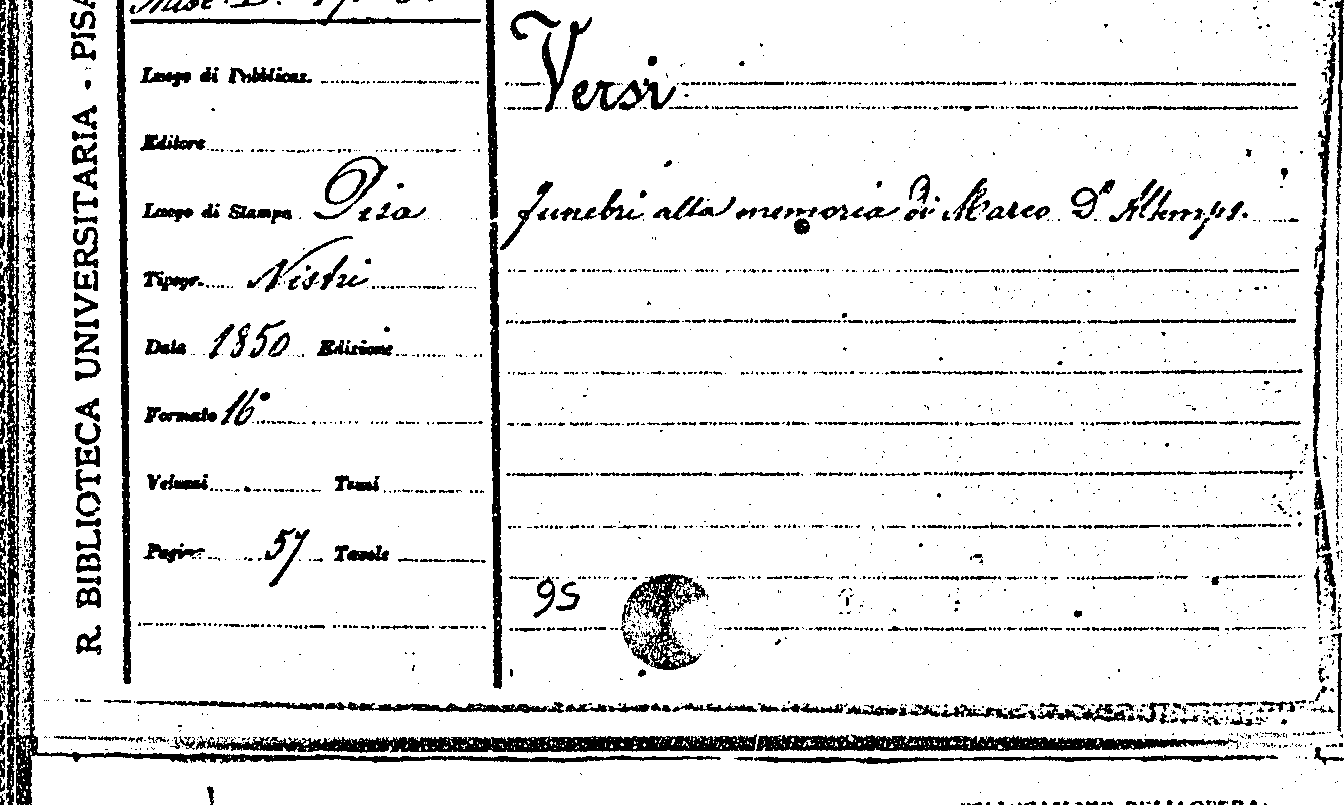 R. BIBLIOTECA UNIVERSITARIA - PISA
Misc.
Luogo di Pubblicaz.
Editore
Luogo di Stampa Pisa
Tipogr. Nistri
Data 1850 Edizione
Formato 16°
Volumi Tomi
Pagine 57 Tavole
Versi
funebri alla memoria di Marco D. Altemps.
95